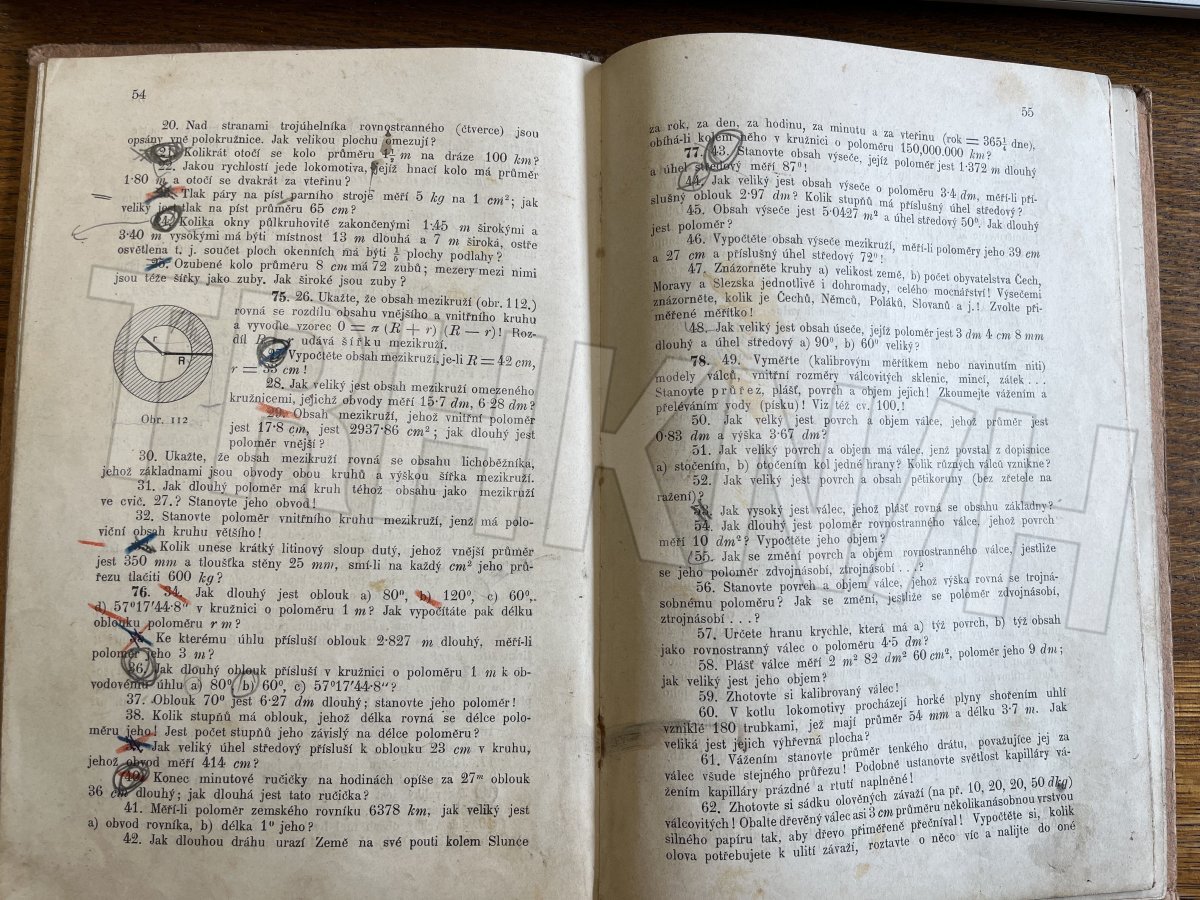 54
20. Nad stranami trojúhelníka rovnostranného (čtverce) jsou
opsány vně polokružnice. Jak velikou plochu omezují?
21. Kolikrát otočí se kolo průměru m na dráze 100 km?
22. Jakou rychlostí jede lokomotiva, jejíž hnací kolo má průměr
1·80 m a otočí se dvakrát za vteřinu?
Tlak páry na píst parního stroje měří 5 kg na 1 cm²; jak
veliký jest tlak na píst průměru 65 cm?
24. Kolika okny půlkruhovitě zakončenými 1·45 m širokými a
3·40 m vysokými má býti místnost 13 m dlouhá a 7 m široká, ostře
osvětlena t. j. součet ploch okenních má býti plochy podlahy?
25. Ozubené kolo průměru 8 cm má 72 zubů; mezery mezi nimi
jsou téže šířky jako zuby. Jak široké jsou zuby?
75. 26. Ukažte, že obsah mezikruží (obr. 112.)
rovná se rozdílu obsahu vnějšího a vnitřního kruhu
a vyvoďte vzorec O = π (R + r) (R — r)! Roz-
díl R — r udává šířku mezikruží.
27. Vypočtěte obsah mezikruží, je-li R = 42 cm,
r = 35 cm!
28. Jak veliký jest obsah mezikruží omezeného
kružnicemi, jejichž obvody měří 15·7 dm, 6·28 dm?
29. Obsah mezikruží, jehož vnitřní poloměr
jest 17·8 cm, jest 2937·86 cm²; jak dlouhý jest
poloměr vnější?
r
R
Obr. 112
30. Ukažte, že obsah mezikruží rovná se obsahu lichoběžníka,
jehož základnami jsou obvody obou kruhů a výškou šířka mezikruží.
31. Jak dlouhý poloměr má kruh téhož obsahu jako mezikruží
ve cvič. 27.? Stanovte jeho obvod!
32. Stanovte poloměr vnitřního kruhu mezikruží, jenž má polo-
viční obsah kruhu většího!
Kolik unese krátký litinový sloup dutý, jehož vnější průměr
jest 350 mm a tloušťka stěny 25 mm, smí-li na každý cm² jeho prů-
řezu tlačiti 600 kg?
76. 34. Jak dlouhý jest oblouk a) 80⁰, b) 120⁰, c) 60⁰,
d) 57⁰17′44·8″ v kružnici o poloměru 1 m? Jak vypočítáte pak délku
oblouku poloměru r m?
Ke kterému úhlu přísluší oblouk 2·827 m dlouhý, měří-li
poloměr jeho 3 m?
36. Jak dlouhý oblouk přísluší v kružnici o poloměru 1 m k ob-
vodovému úhlu a) 80⁰, b) 60⁰, c) 57⁰17′44·8″?
37. Oblouk 70⁰ jest 6·27 dm dlouhý; stanovte jeho poloměr!
38. Kolik stupňů má oblouk, jehož délka rovná se délce polo-
měru jeho! Jest počet stupňů jeho závislý na délce poloměru?
Jak veliký úhel středový přísluší k oblouku 23 cm v kruhu,
jehož obvod měří 414 cm?
40. Konec minutové ručičky na hodinách opíše za 27ᵐ oblouk
36 cm dlouhý; jak dlouhá jest tato ručička?
41. Měří-li poloměr zemského rovníku 6378 km, jak veliký jest
a) obvod rovníka, b) délka 1⁰ jeho?
42. Jak dlouhou dráhu urazí Země na své pouti kolem Slunce
55
za rok, za den, za hodinu, za minutu a za vteřinu (rok = 365¼ dne),
obíhá-li kolem něho v kružnici o poloměru 150,000.000 km?
77. 43. Stanovte obsah výseče, jejíž poloměr jest 1·372 m dlouhý
a úhel středový měří 87⁰!
44. Jak veliký jest obsah výseče o poloměru 3·4 dm, měří-li pří-
slušný oblouk 2·97 dm? Kolik stupňů má příslušný úhel středový?
45. Obsah výseče jest 5·0427 m² a úhel středový 50⁰. Jak dlouhý
jest poloměr?
46. Vypočtěte obsah výseče mezikruží, měří-li poloměry jeho 39 cm
a 27 cm a příslušný úhel středový 72⁰!
47. Znázorněte kruhy a) velikost země, b) počet obyvatelstva Čech,
Moravy a Slezska jednotlivě i dohromady, celého mocnářství! Výsečemi
znázorněte, kolik je Čechů, Němců, Poláků, Slovanů a j.! Zvolte při-
měřené měřítko!
48. Jak veliký jest obsah úseče, jejíž poloměr jest 3 dm 4 cm 8 mm
dlouhý a úhel středový a) 90⁰, b) 60⁰ veliký?
78. 49. Vyměřte (kalibrovým měřítkem nebo navinutím niti)
modely válců, vnitřní rozměry válcovitých sklenic, mincí, zátek . . .
Stanovte průřez, plášť, povrch a objem jejich! Zkoumejte vážením a
přeléváním vody (písku)! Viz též cv. 100.!
50. Jak velký jest povrch a objem válce, jehož průměr jest
0·83 dm a výška 3·67 dm?
51. Jak veliký povrch a objem má válec, jenž povstal z dopisnice
a) stočením, b) otočením kol jedné hrany? Kolik různých válců vznikne?
52. Jak veliký jest povrch a obsah pětikoruny (bez zřetele na
ražení)?
53. Jak vysoký jest válec, jehož plášť rovná se obsahu základny?
54. Jak dlouhý jest poloměr rovnostranného válce, jehož povrch
měří 10 dm²? Vypočtěte jeho objem?
55. Jak se změní povrch a objem rovnostranného válce, jestliže
se jeho poloměr zdvojnásobí, ztrojnásobí . . .?
56. Stanovte povrch a objem válce, jehož výška rovná se trojná-
sobnému poloměru? Jak se změní, jestliže se poloměr zdvojnásobí,
ztrojnásobí . . .?
57. Určete hranu krychle, která má a) týž povrch, b) týž obsah
jako rovnostranný válec o poloměru 4·5 dm?
58. Plášť válce měří 2 m² 82 dm² 60 cm², poloměr jeho 9 dm;
jak veliký jest jeho objem?
59. Zhotovte si kalibrovaný válec!
60. V kotlu lokomotivy procházejí horké plyny shořením uhlí
vzniklé 180 trubkami, jež mají průměr 54 mm a délku 3·7 m. Jak
veliká jest jejich výhřevná plocha?
61. Vážením stanovte průměr tenkého drátu, považujíce jej za
válec všude stejného průřezu! Podobně ustanovte světlost kapiláry vá-
žením kapiláry prázdné a rtutí naplněné!
62. Zhotovte si sádku olověných závaží (na př. 10, 20, 20, 50 dkg)
válcovitých! Obalte dřevěný válec asi 3 cm průměru několikanásobnou vrstvou
silného papíru tak, aby dřevo přiměřeně přečníval! Vypočtěte si, kolik
olova potřebujete k ulití závaží, roztavte o něco víc a nalijte do oné
TRHKNIH